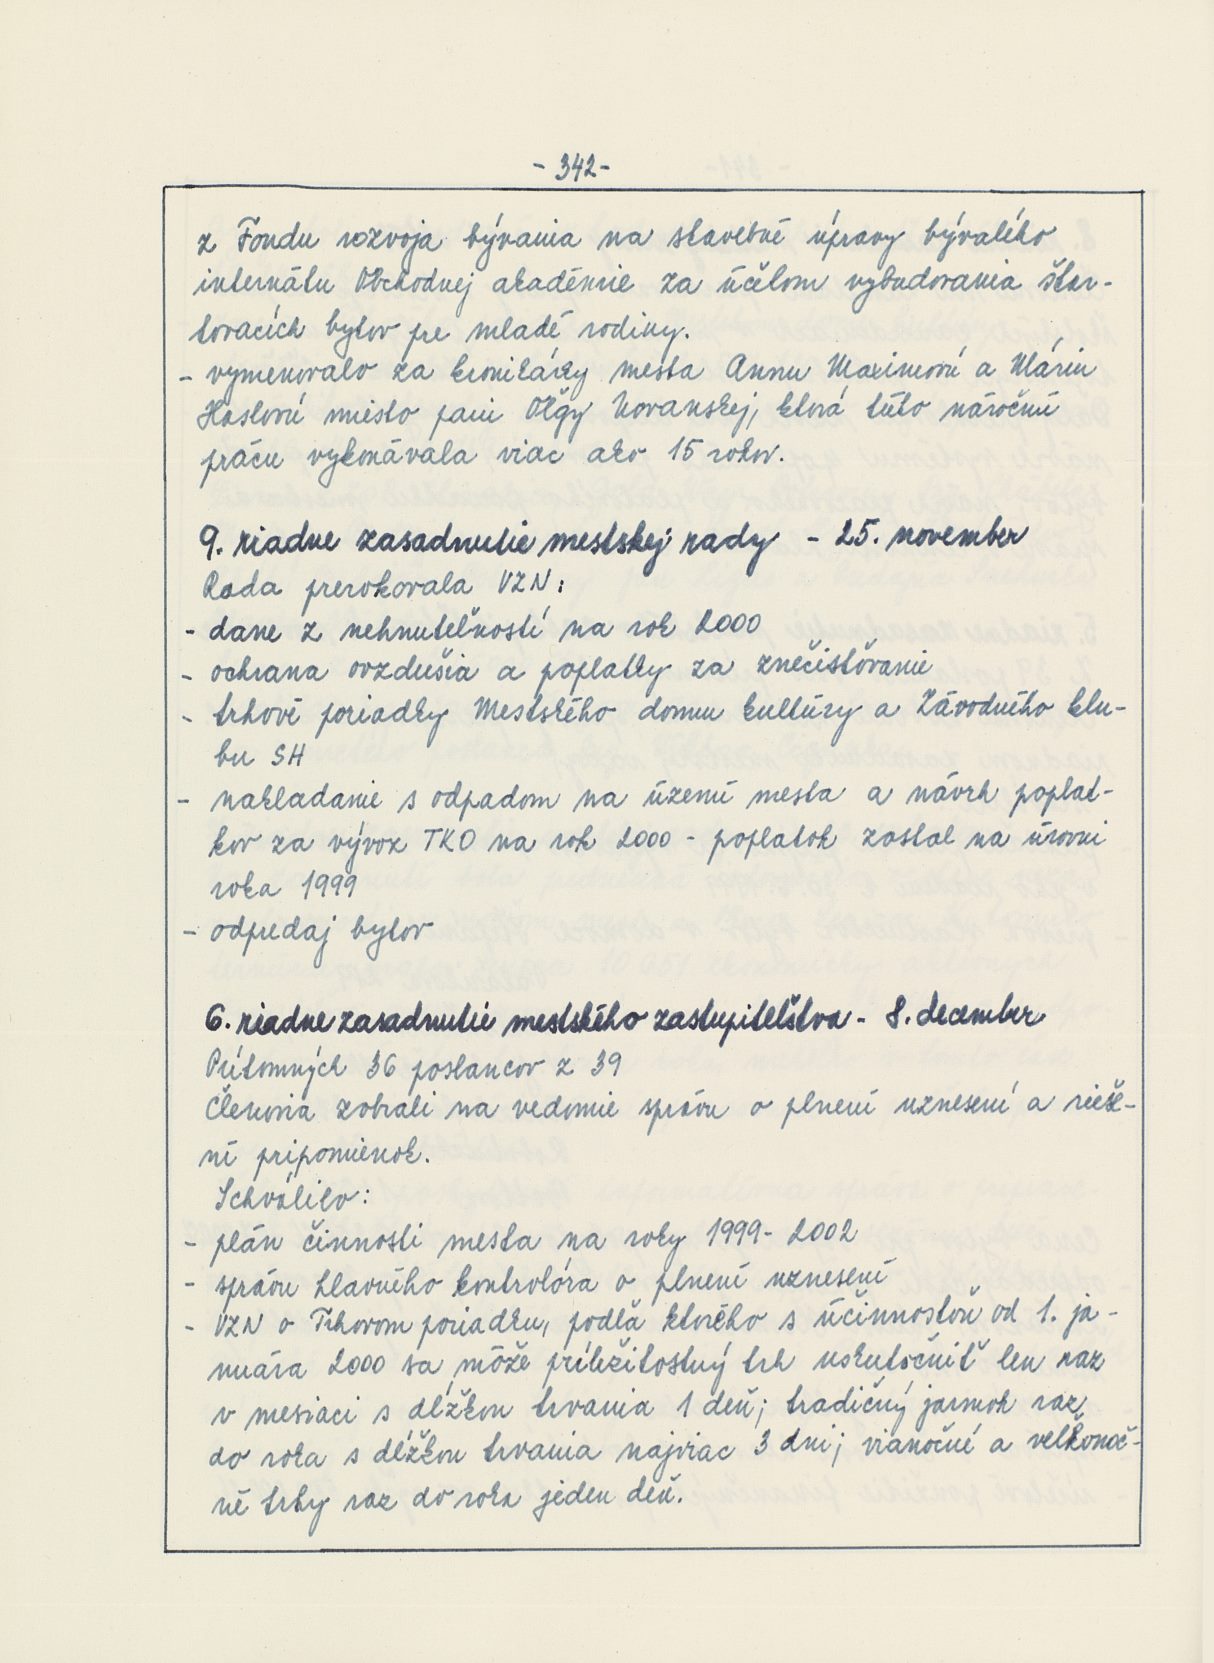 - 342 -
z Fondu rozvoja bývania na stavebné úpravy bývalého
internátu Obchodnej akadémie za účelom vybudovania štar-
tovacích bytov pre mladé rodiny.
- vymenovalo za kronikárky mesta Annu Maximovú a Máriu
Haslovú miesto pani Oľgy Novanskej, ktorá túto náročnú
prácu vykonávala viac ako 15 rokov.
9. riadne zasadnutie mestskej rady - 25. november
Rada prerokovala VZN:
- dane z nehnuteľností na rok 2000
- ochrana ovzdušia a poplatky za znečisťovanie
- trhové poriadky Mestského domu kultúry a Závodného klu-
bu SH
- nakladanie s odpadom na území mesta a návrh poplat-
kov za vývoz TKO na rok 2000 - poplatok zostal na úrovni
roka 1999
- odpredaj bytov
6. riadne zasadnutie mestského zastupiteľstva - 8. december
Prítomných 36 poslancov z 39
Členovia zobrali na vedomie správu o plnení uznesení a rieše-
ní pripomienok.
Schválilo:
- plán činnosti mesta na roky 1999 - 2002
- správu hlavného kontrolóra o plnení uznesení
- VZN o Trhovom poriadku, podľa ktorého s účinnosťou od 1. ja-
nuára 2000 sa môže príležitostný trh uskutočniť len raz
v mesiaci s dĺžkou trvania 1 deň; tradičný jarmok raz
do roka s dĺžkou trvania najviac 3 dni; vianočné a veľkonoč-
né trhy raz do roka jeden deň.